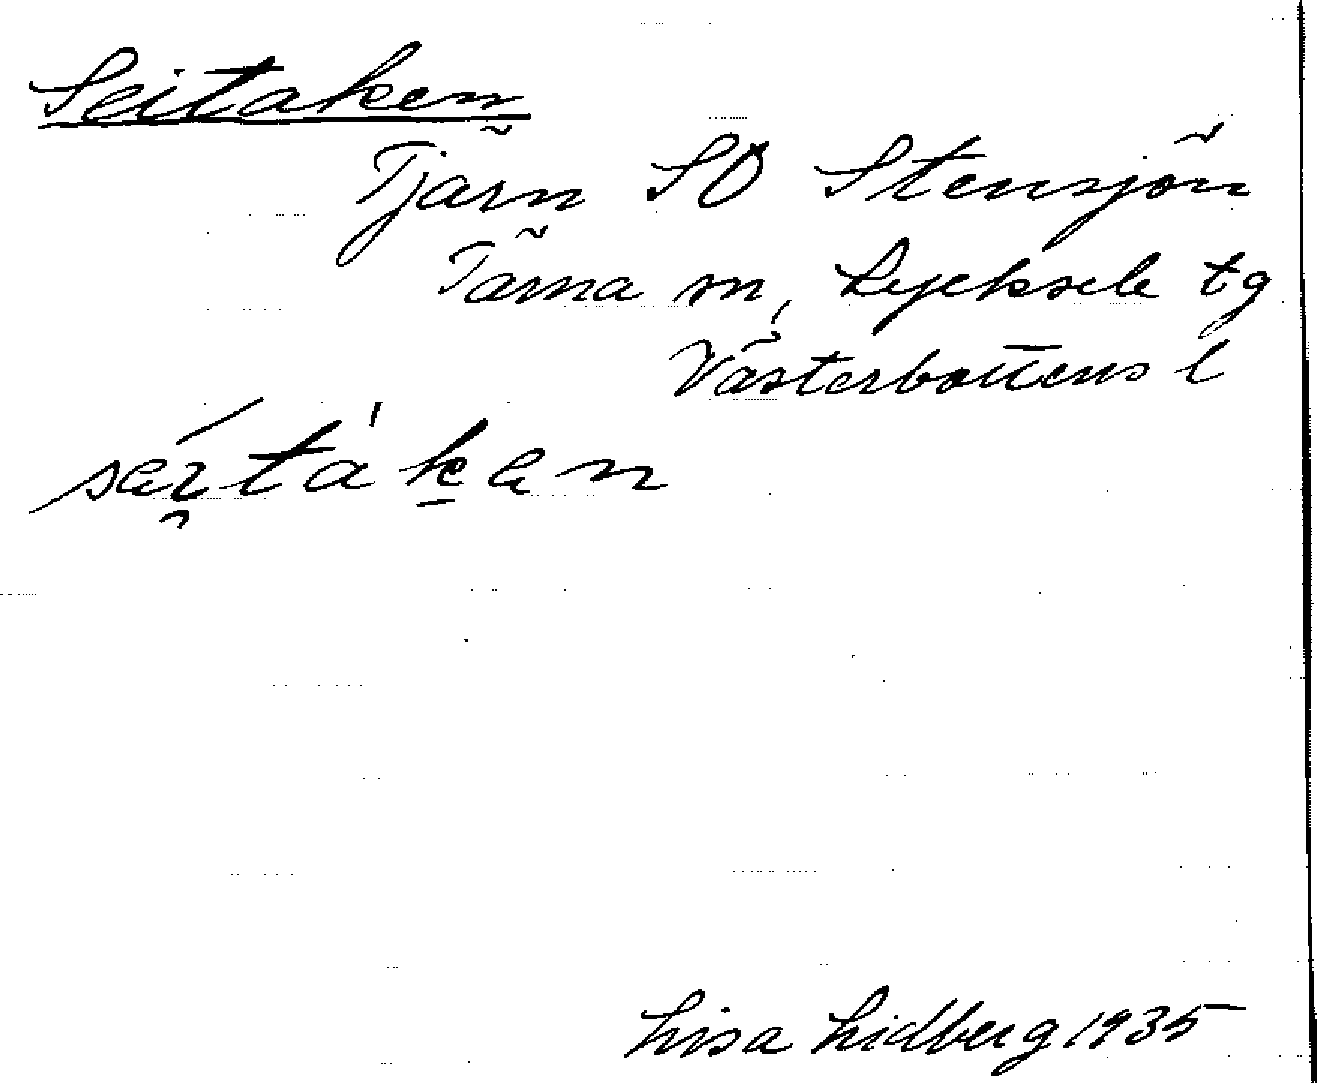 Seitaken
Tjärn SO Stensjön
Tärna sn, Lycksele tg
Västerbottens l
Lisa Lidberg 1935